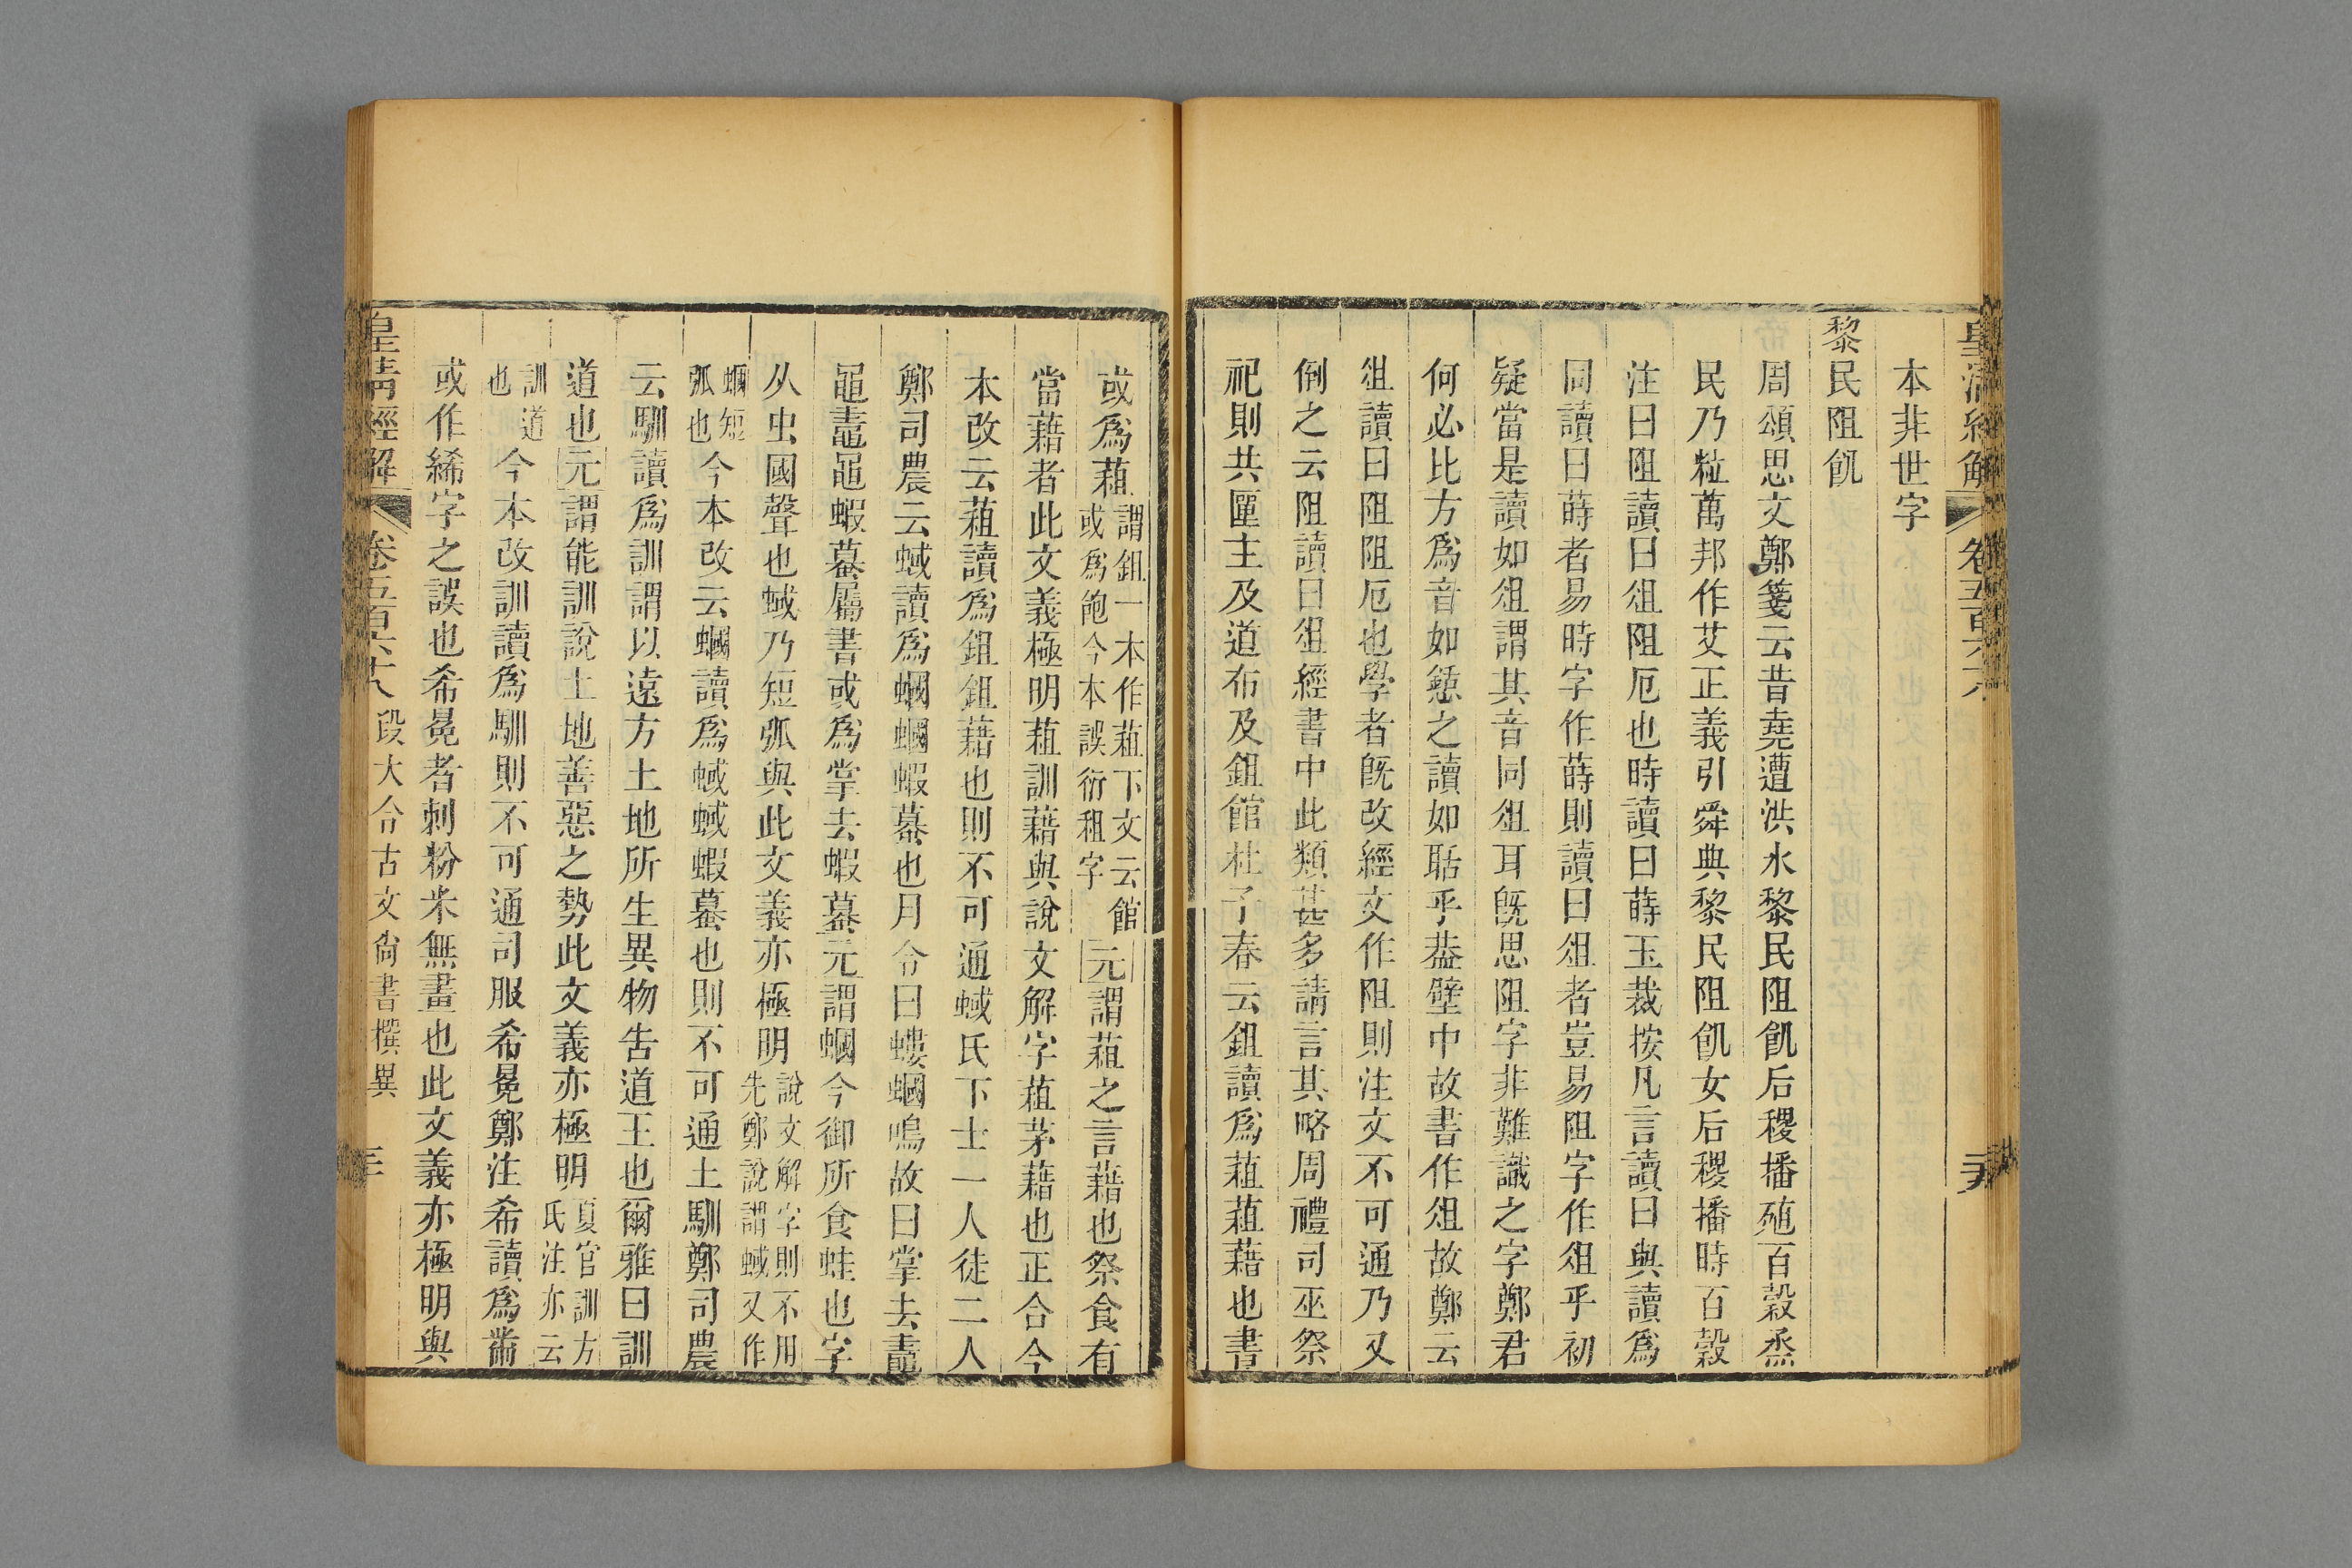 皇清經解 卷五百六十八
本非世字
黎民阻飢
周頌思文鄭箋云昔堯遭洪水黎民阻飢后稷播殖百穀烝
民乃粒萬邦作艾正義引舜典黎民阻飢女后稷播時百穀
注曰阻讀曰俎阻厄也時讀曰蒔玉裁按凡言讀曰與讀爲
同讀曰蒔者易時字作蒔則讀曰俎者豈易阻字作俎乎初
疑當是讀如俎謂其音同俎耳旣思阻字非難識之字鄭君
何必比方爲音如鎴之讀如聒乎葢壁中故書作俎故鄭云
俎讀曰阻阻厄也學者旣改經文作阻則注文不可通乃又
倒之云阻讀曰俎經書中此類甚多請言其略周禮司巫祭
祀則共匰主及道布及鉏館杜子春云鉏讀爲蒩蒩藉也書
或爲蒩謂鉏一本作蒩下文云館或爲飽今本誤衍租字元謂蒩之言藉也祭食有
當藉者此文義極明蒩訓藉與說文解字蒩茅藉也正合今
本改云蒩讀爲鉏鉏藉也則不可通蜮氏下士一人徒二人
鄭司農云蜮讀爲蟈蟈蝦蟇也月令曰螻蟈鳴故曰掌去鼃
黽鼃黽蝦蟇屬書或爲掌去蝦蟇元謂蟈今御所食蛙也字
从虫國聲也蜮乃短弧與此文義亦極明說文解字則不用先鄭說謂蜮又作
蟈短弧也今本改云蟈讀爲蜮蜮蝦蟇也則不可通土馴鄭司農
云馴讀爲訓謂以遠方土地所生異物告道王也爾雅曰訓
道也元謂能訓說土地善惡之勢此文義亦極明夏官訓方氏注亦云
訓道也今本改訓讀爲馴則不可通司服希冕鄭注希讀爲黹
或作絺字之誤也希冕者刺粉米無畫也此文義亦極明與
皇清經解 卷五百六十八 段大令古文尙書撰異